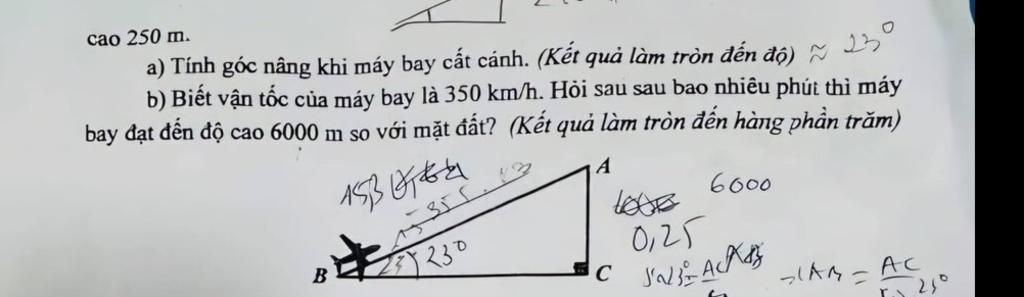 cao 250 m.
a) Tính góc nâng khi máy bay cất cánh. (Kết quả làm tròn đến độ) ≈ 23°
b) Biết vận tốc của máy bay là 350 km/h. Hỏi sau sau bao nhiêu phút thì máy
bay đạt đến độ cao 6000 m so với mặt đất? (Kết quả làm tròn đến hàng phần trăm)
A
6000
0,25
23°
B
C
AC
23°